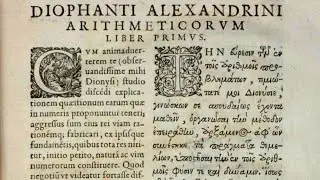 DIOPHANTI ALEXANDRINI
ARITHMETICORVM
LIBER PRIMVS.
CVM animaduer-
terem te (obser-
uandissime mihi
Dionysi) studio
discēdi explica-
tionem quæstionum earum quæ
in numeris proponuntur teneri;
aggressus sum eius rei viam ratio-
nemq; fabricari, ex ipsisque
quibus tota res nititur, ini-
tio petito, naturā ac vim
numerorum constituere. Quod
negotium etsi videatur fortasse dif-
ΤΗΝ εὕρεσιν τῶν ἐν
τοῖς ἀριθμοῖς προ-
βλημάτων, τιμιώτα-
τέ μοι Διονύσιε, γι-
νώσκων σε σπουδαίως ἔχοντα
μαθεῖν, ὀργανῶσαι τὴν μέθοδον
ἐπειράθην, ἀρξάμενος ἀφ᾽ ὧν
συνέστηκε τὰ πράγματα θεμε-
λίων, ὑποστῆσαι τὴν ἐν τοῖς ἀριθ-
μοῖς φύσιν τε καὶ δύναμιν.